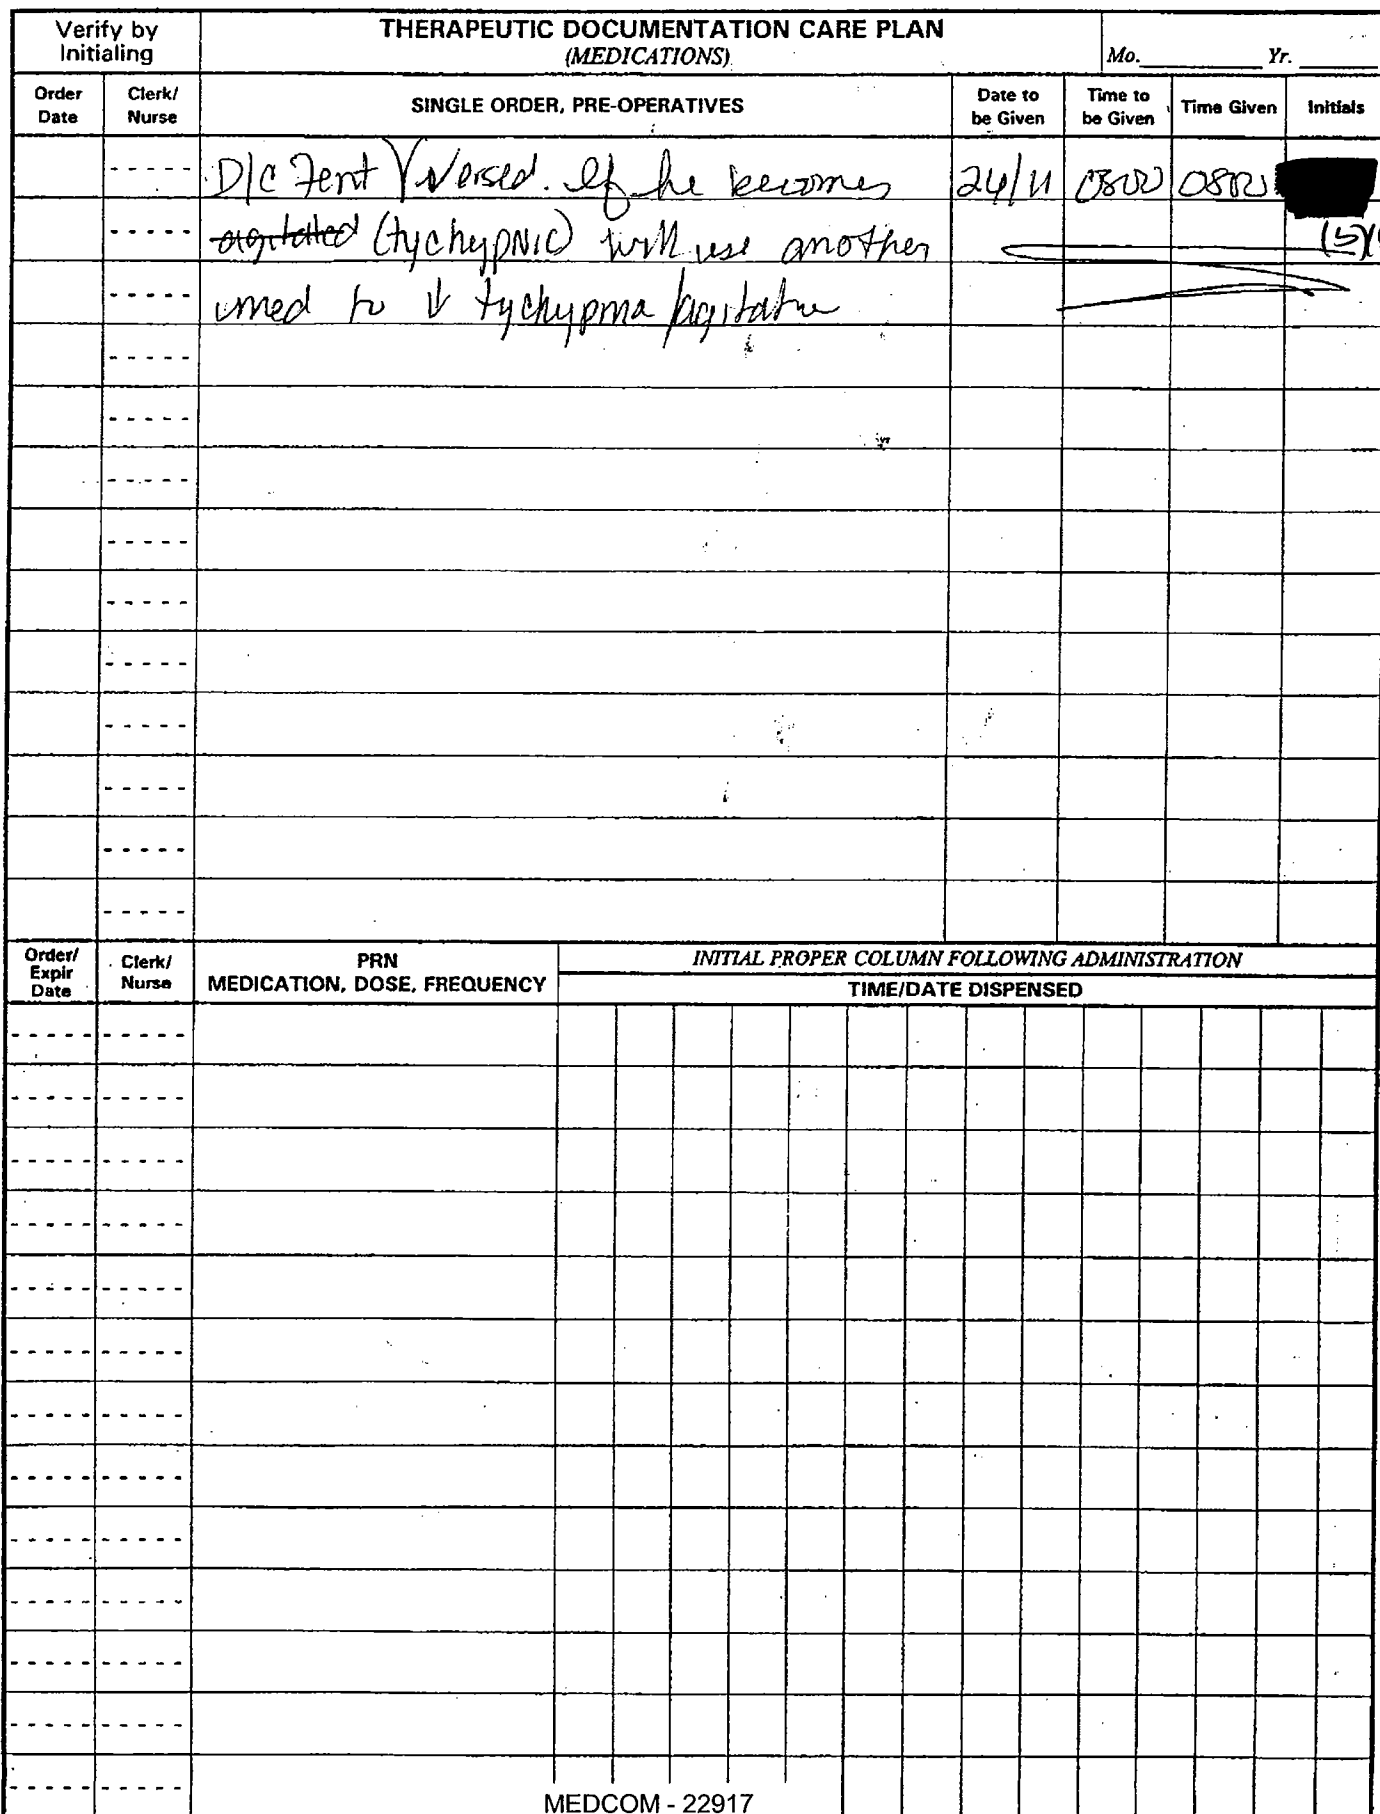 Verify by Initialing
THERAPEUTIC DOCUMENTATION CARE PLAN
(MEDICATIONS)
Mo. Yr.
Order Date
Clerk/ Nurse
SINGLE ORDER, PRE-OPERATIVES
Date to be Given
Time to be Given
Time Given
Initials
D/C Fent Versed. If he becomes 24/11 0800 0800
agitated (tychypnic) will use another
med to ↓ tychypnia/agitation
Order/ Expir Date
Clerk/ Nurse
PRN
MEDICATION, DOSE, FREQUENCY
INITIAL PROPER COLUMN FOLLOWING ADMINISTRATION
TIME/DATE DISPENSED
MEDCOM - 22917